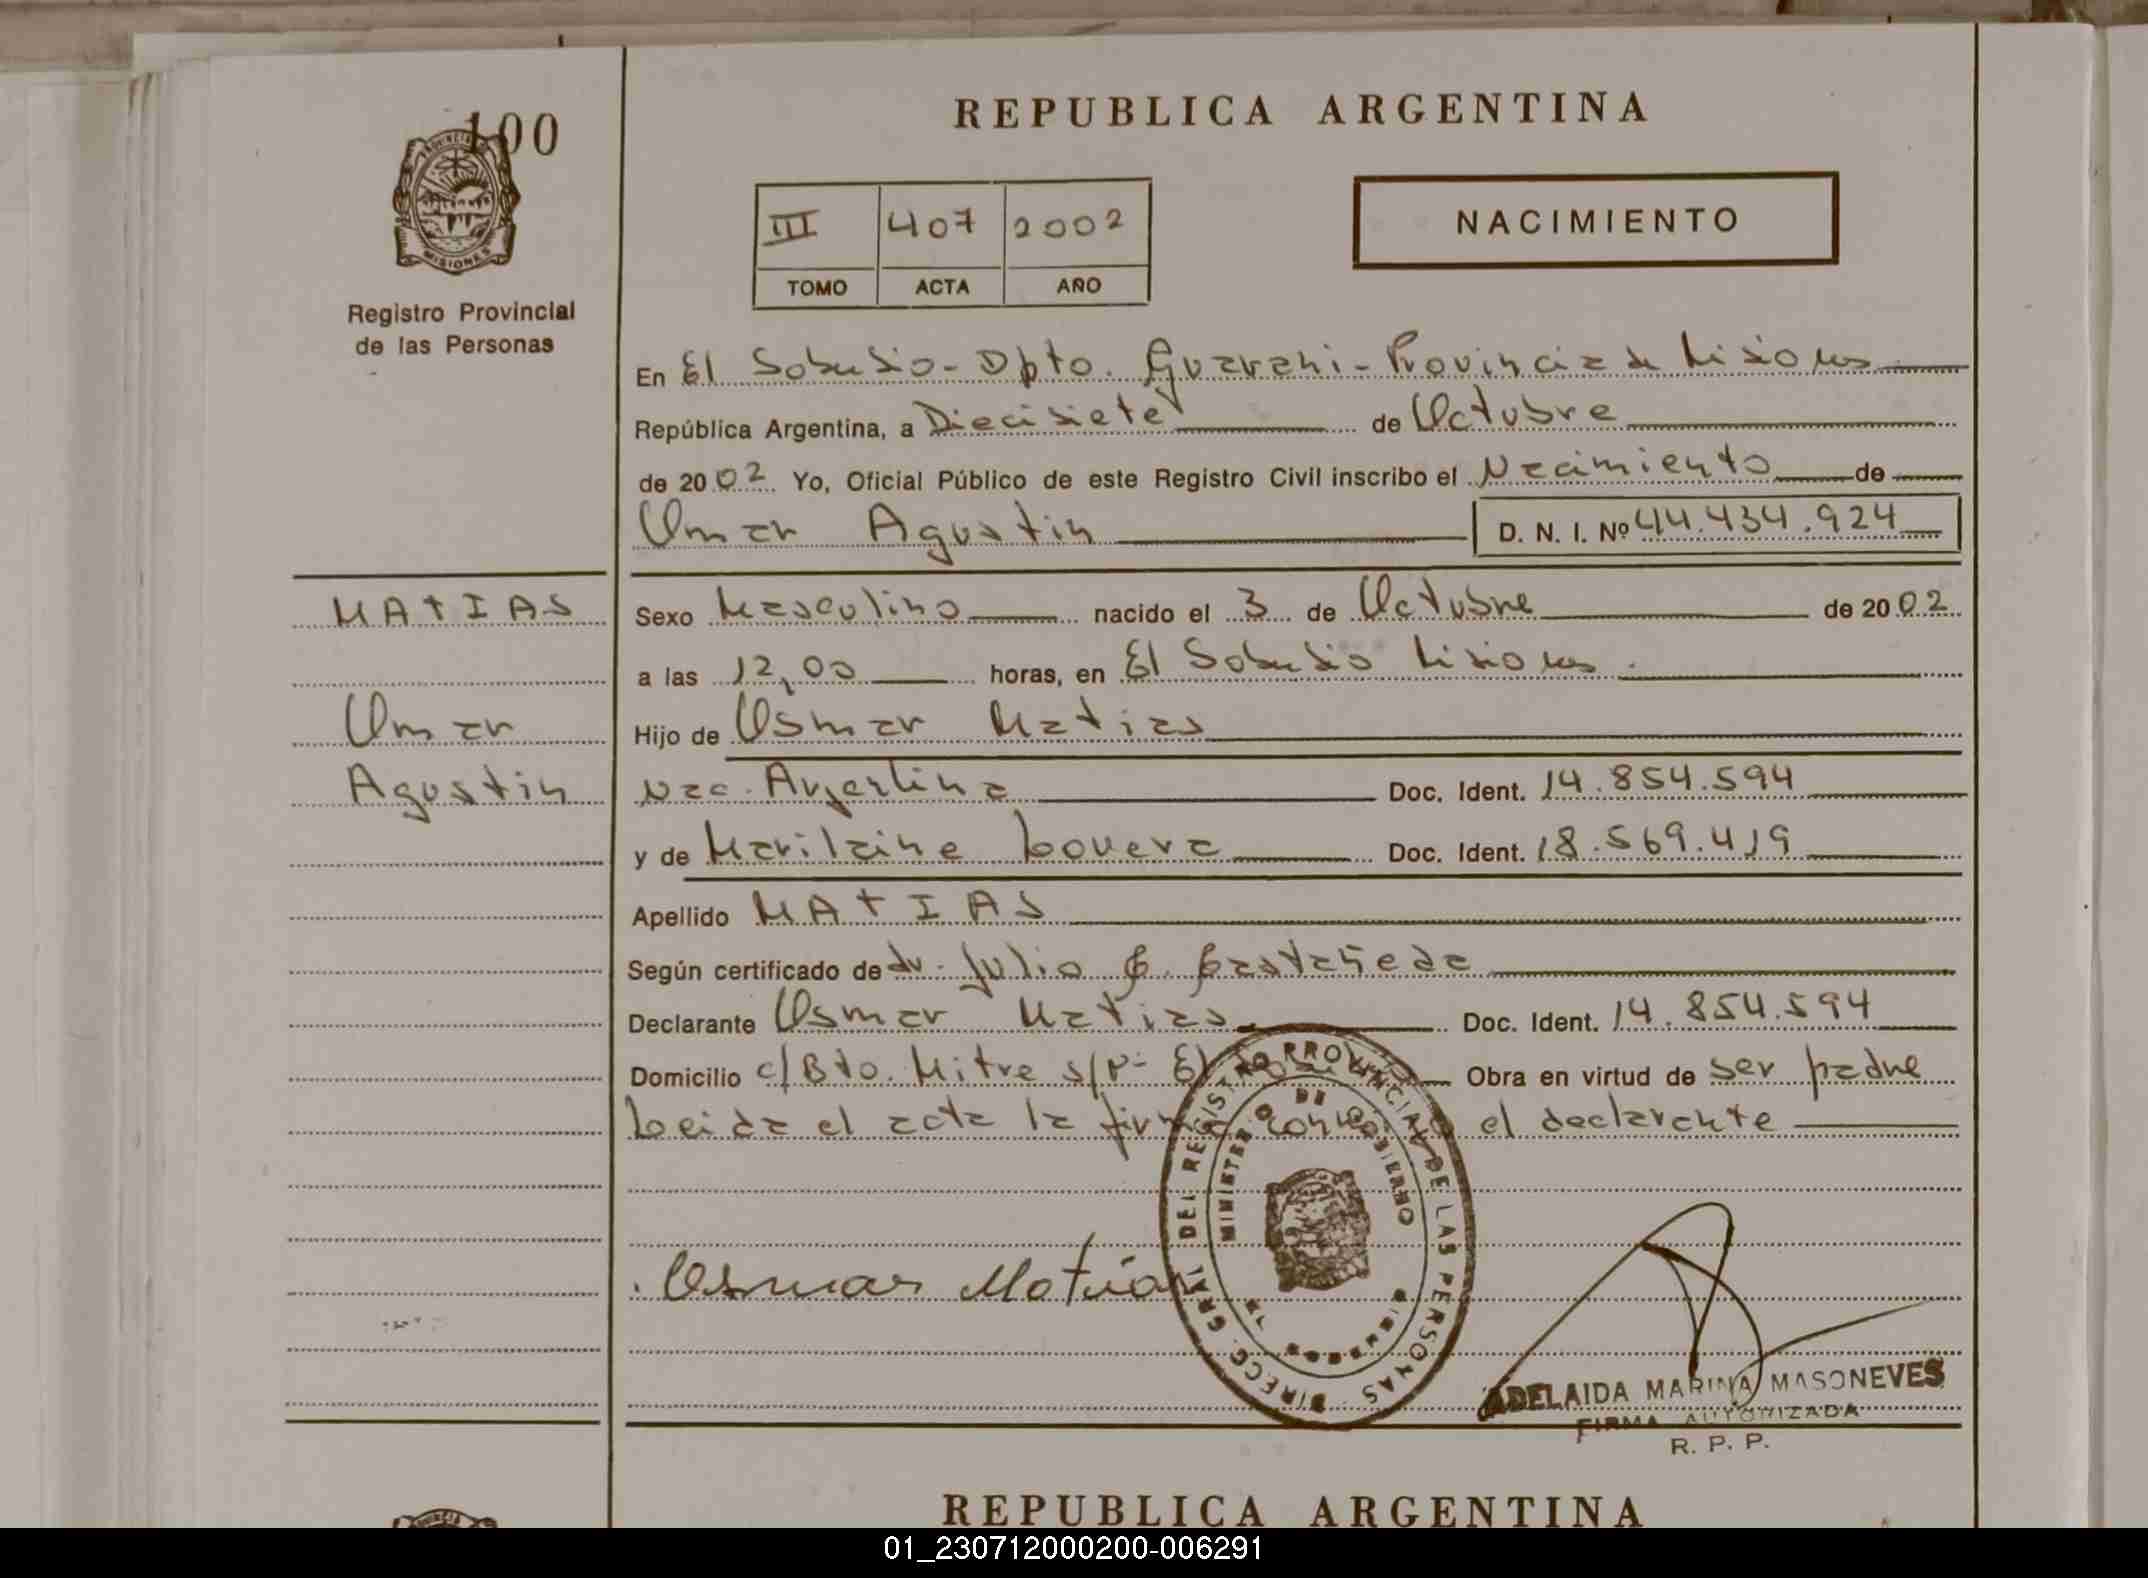 100
PROVINCIA
MISIONES
Registro Provincial
de las Personas
REPUBLICA ARGENTINA
III 407 2002
TOMO ACTA AÑO
NACIMIENTO
En El Soberbio - Dpto. Guarani - Provincia de Misiones
República Argentina, a Diecisiete de Octubre
de 2002 Yo, Oficial Público de este Registro Civil inscribo el Nacimiento de
Omar Agustin D. N. I. Nº 44.434.924
MATIAS
Omar
Agustin
Sexo Masculino nacido el 3 de Octubre de 2002
a las 12,00 horas, en El Soberbio Misiones.
Hijo de Osmar Matias
Nac. Argentina Doc. Ident. 14.854.594
y de Marilaine Lovera Doc. Ident. 18.569.419
Apellido MATIAS
Según certificado de dr. Julio C. Castañeda
Declarante Osmar Matias Doc. Ident. 14.854.594
Domicilio c/ Bto. Mitre s/Nº El Obra en virtud de ser padre
Leida el acta la firma conmigo el declarante
Osmar Matias
DIRECC. GRAL DEL REGISTRO PROVINCIAL DE LAS PERSONAS
MINISTERIO DE GOBIERNO
ADELAIDA MARINA MASONEVES
FIRMA AUTORIZADA
R. P. P.
REPUBLICA ARGENTINA
01_230712000200-006291